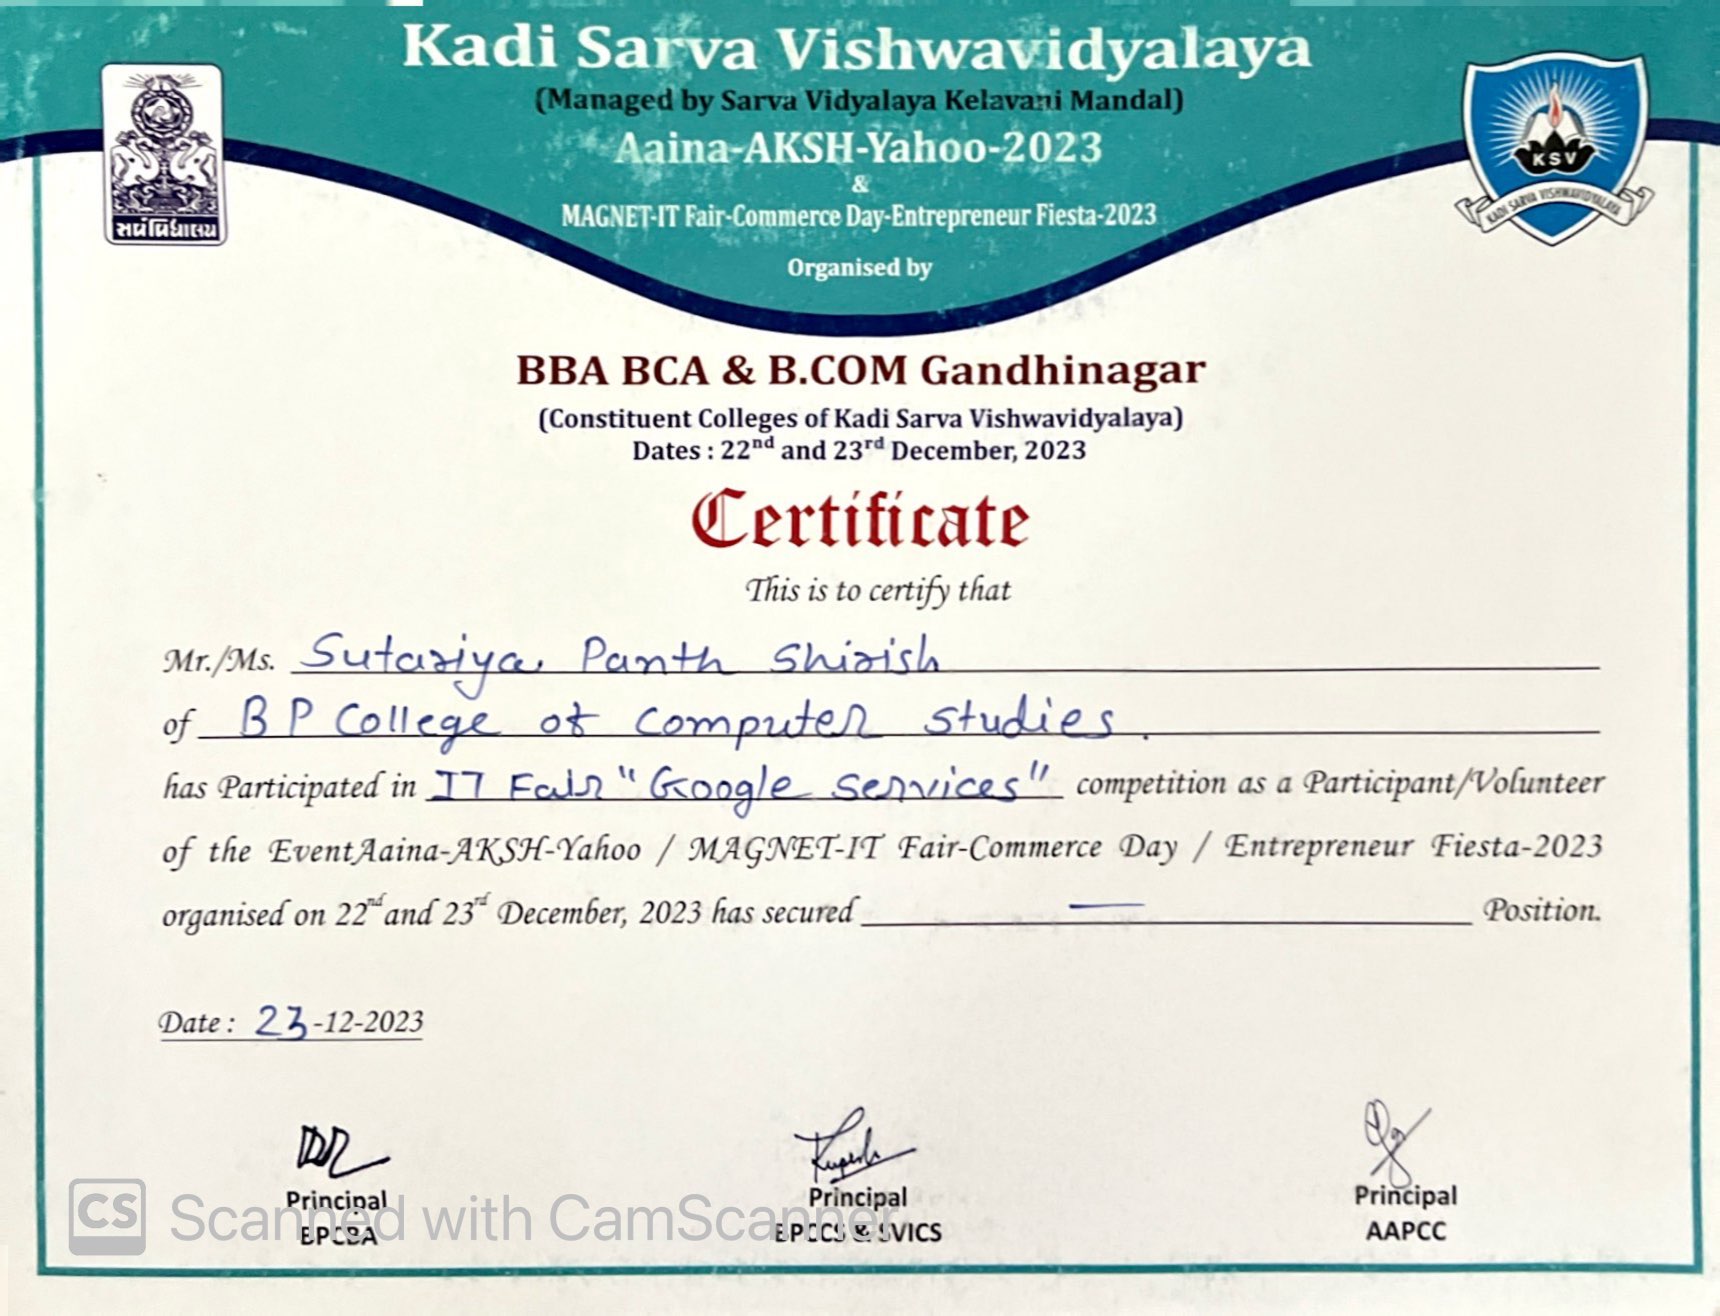 Kadi Sarva Vishwavidyalaya
(Managed by Sarva Vidyalaya Kelavani Mandal)
Aaina-AKSH-Yahoo-2023
&
MAGNET-IT Fair-Commerce Day-Entrepreneur Fiesta-2023
Organised by
સર્વ વિદ્યાલય
KSV
KADI SARVA VISHWAVIDYALAYA
BBA BCA & B.COM Gandhinagar
(Constituent Colleges of Kadi Sarva Vishwavidyalaya)
Dates : 22nd and 23rd December, 2023
Certificate
This is to certify that
Mr./Ms. Sutariya Panth Shirish
of B P College of Computer Studies.
has Participated in IT Fair "Google Services" competition as a Participant/Volunteer
of the EventAaina-AKSH-Yahoo / MAGNET-IT Fair-Commerce Day / Entrepreneur Fiesta-2023
organised on 22nd and 23rd December, 2023 has secured — Position.
Date : 23-12-2023
Principal
BPCBA
Principal
BPCCS & SVICS
Principal
AAPCC
CS Scanned with CamScanner